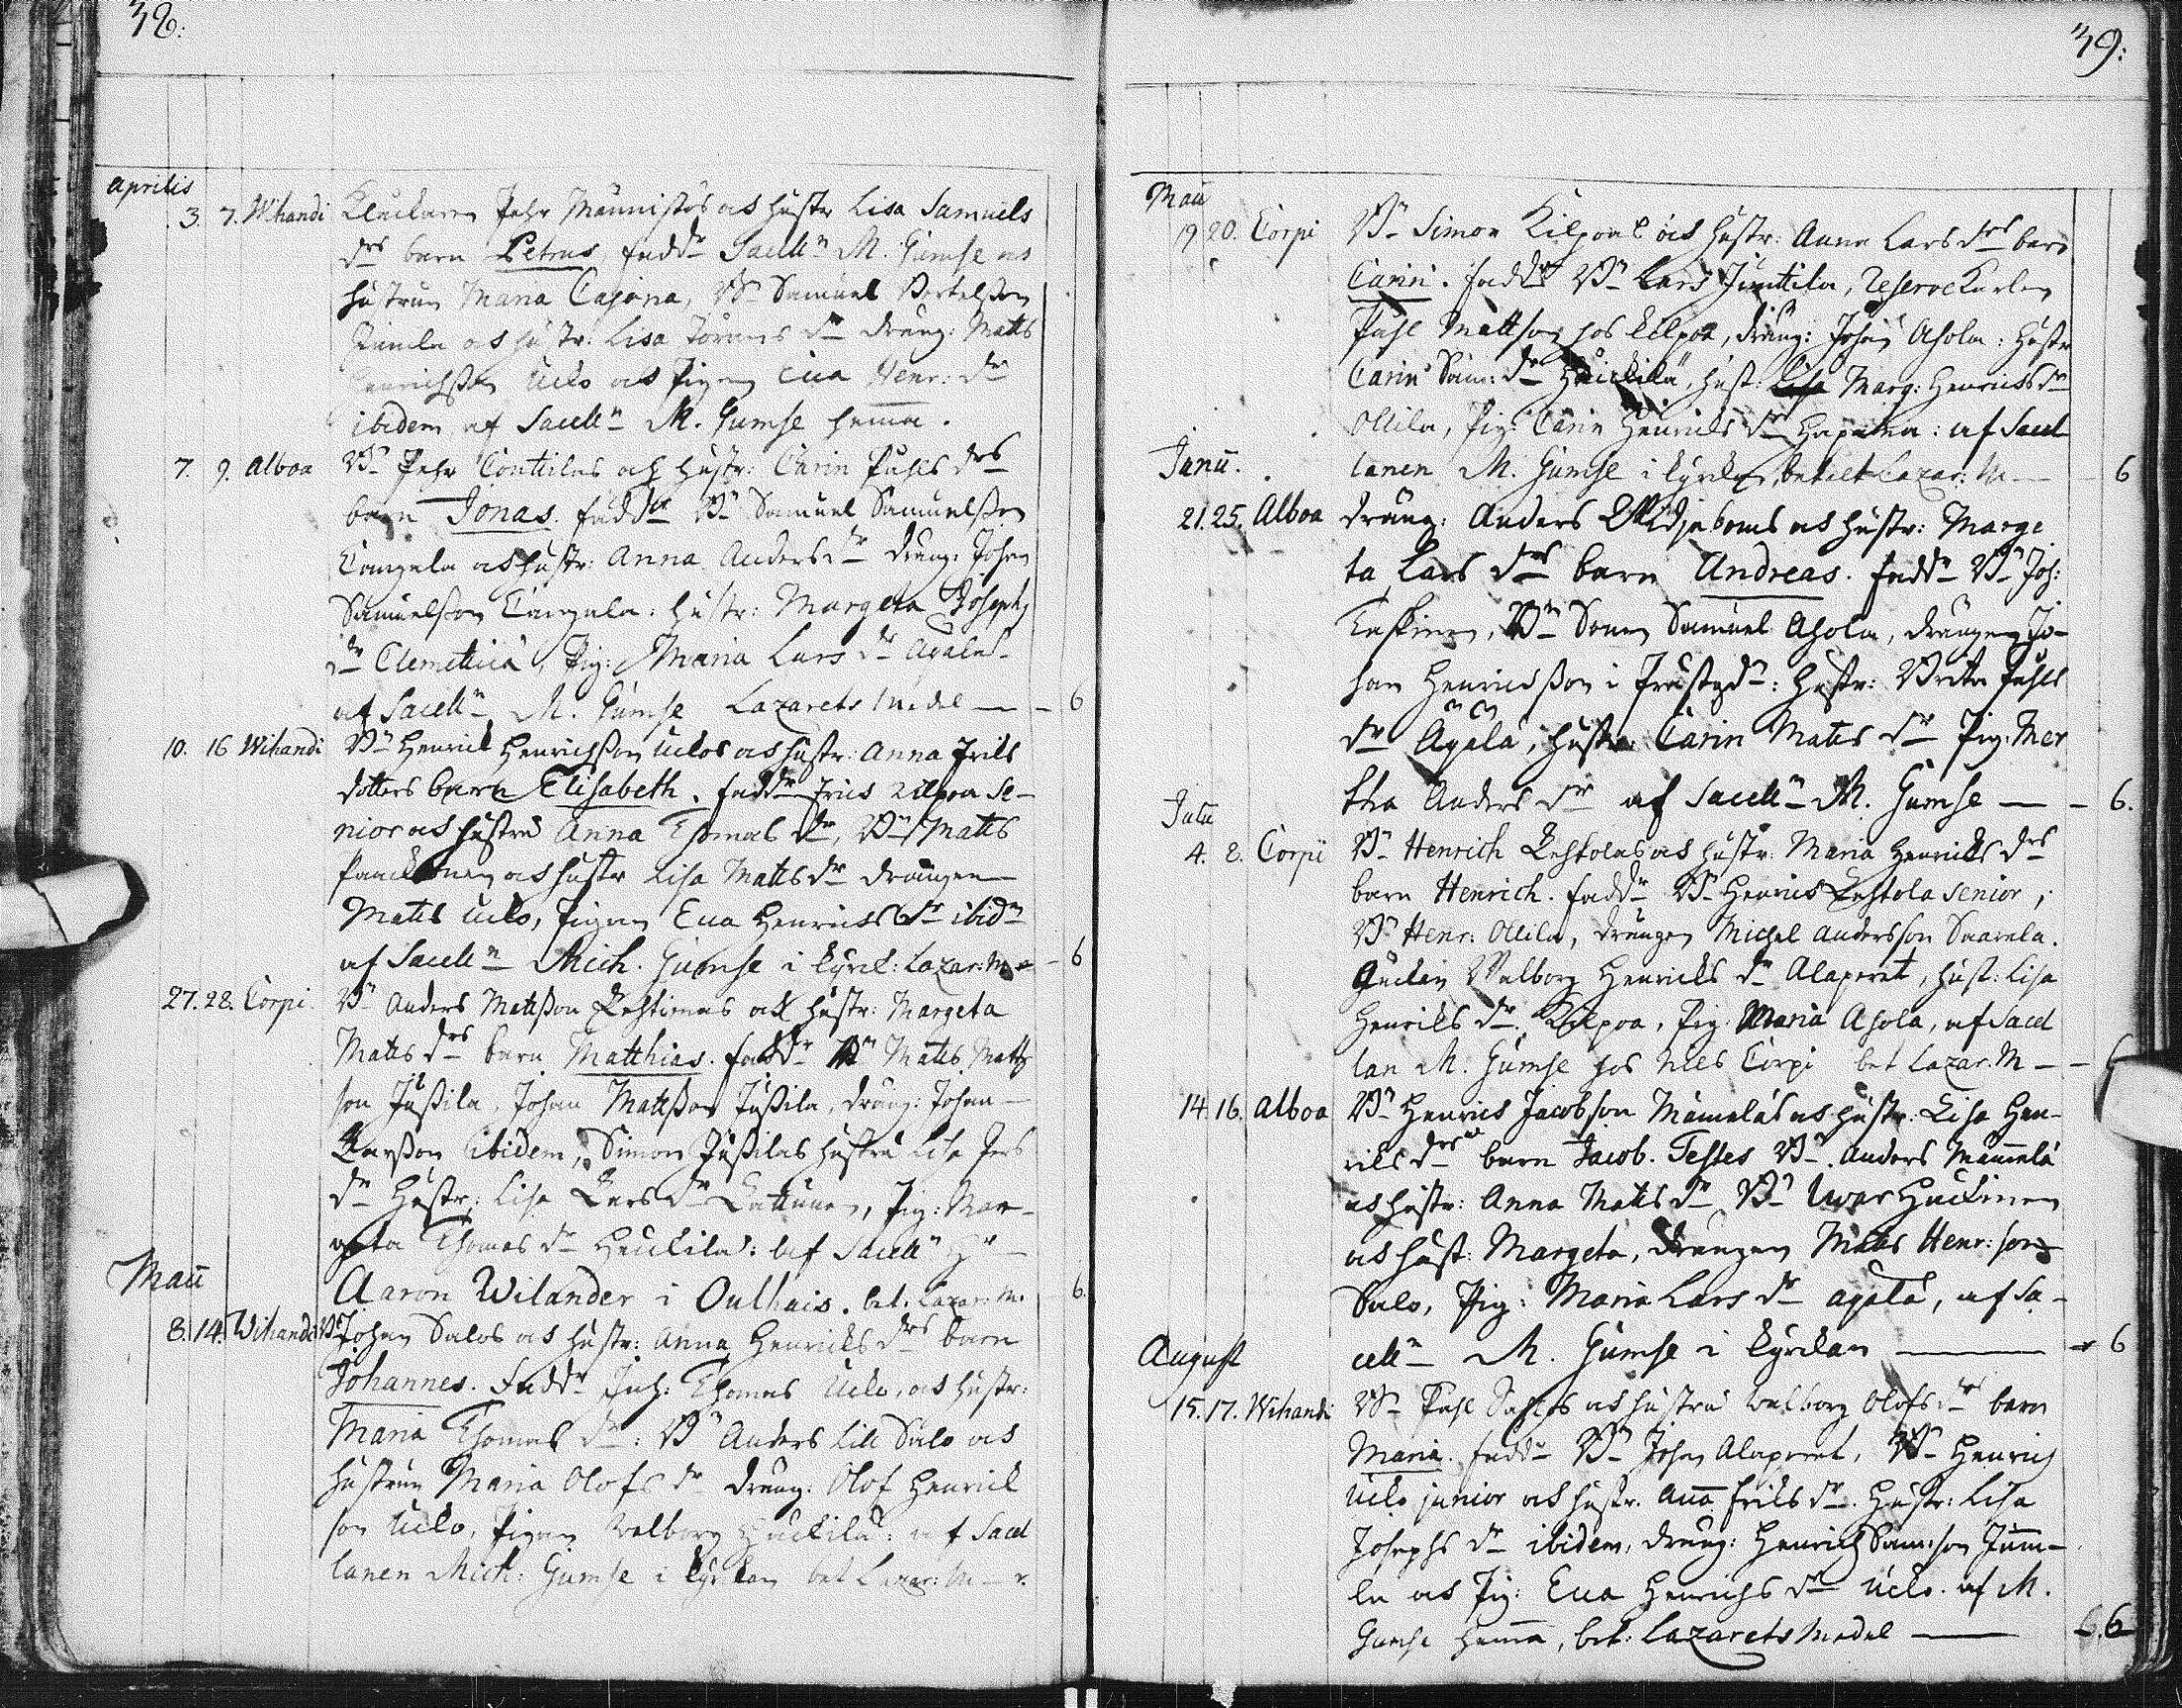 38:
Aprilis
3. 7. Wihandi Klockaren Pehr Männistös och hustr Lisa Samuels
drs barn Petrus, fadd:r Sacell:n M. Gumse och
hustrun Maria Cajana, B:n Samuel Bertelsson
och hustr: Lisa Görans d:r dräng: Matts
Henrichsson Uclo och Pigan Eva Henr: d:r
ibidem, af Sacell:n M. Gumse hemma.
7. 9. Alboa B:n Pehr Conttilas och hustr: Carin Påhls drs
barn Jonas. fadd:r B:n Samuel Samuelsson
Cangala och hustr: Anna Anders d:r dräng: Johan
Samuelsson Cangala: hustr: Margeta Josephs
d:r Clemettilä, Pig: Maria Lars d:r
af Sacell:n M. Gumse Lazarets medel — 6
10. 16 Wihandi B:n Henrich Henrichsson Uclos och hustr: Anna Erils
dotters barn Elisabeth. fadd:r Erics Kilpoa se-
nior och hustru Anna Thomas d:r, B:n Matts
och hustr Lisa Matts d:r drängen
Matts Uclo, Pigan Eva Henrichs d:r ibid:m
af Sacell:n Mich. Gumse i kyrk: Lazar: M — 6
27. 28. Corpi. B:n Anders Mattsson Lehtimas och hustr: Margeta
Matts drs barn Matthias. fadd:r B:n Matts Matts
son Jussila, Johan Mattsson Jussila, dräng: Johan
Larsson ibidem, Simon Jussilas hustru Lisa Pers
d:r Hustr: Lisa Lars d:r, Pig: Mar-
geta Thomas d:r Heickilä: af Sacell:n H:r
Aaron Wilander i Oulhais. bet. Lazar: M. — 6.
Maii
8. 14. Wihandi B:n Johan Salos och hustr: Anna Henrichs drs barn
Johannes. Fadd:r Joh: Thomas Uclo, och hustr:
Maria Thomas d:r: B:n Anders Lill Salo och
hustrun Maria Olofs d:r dräng: Olof Henrich
son Uclo, Pigan Walborg Heickilä: af Sacel
lanen Mich: Gumse i kyrkan bet Lazar: M
39:
Maii
19 20. Corpi B:n Simon Kilpoas och hustr: Anna Lars drs barn
Carin. fadd:r B:n Lars Junttila, Reserve Karlen
Påhl Mattson hos Kilpoa, dräng: Johan Ahola: hustr
Carin Sam: d:r Heickilä, hust: Marg: Henrichs d:r
Ollila, Pig: Carin Henrichs d:r Haparna: af Sacel
lanen M. Gumse i kyrkan, betalt Lazar: M — 6
Junii.
21. 25. Alboa Dräng: Anders och hustr: Marge
ta Lars drs barn Andreas. fadd:r B:n Joh:
B:n Sonen Samuel Ahola, drängen Jo-
han Henrichsson i: Hustr: Brita Påhls
d:r Äyälä, hustr: Carin Matts d:r Pig: Mar
tha Anders d:r af Sacell:n M. Gumse — 6.
Julii
4. 8. Corpi B:n Henrich Lehtolas och hustr: Maria Henrichs drs
barn Henrich. fadd:r B:n Henrich Lehtola senior,
B:n Henr: Ollila, drängen Michel Andersson Saarela.
Walborg Henrichs d:r Alaperet, hust: Lisa
Henrichs d:r Kilpoa, Pig: Maria Ahola, af Sacel
lan M. Gumse hos Nils Corpi bet Lazar. M — 6
14. 16. Alboa B:n Henrich Jacobson Mämelä och hustr: Lisa Hen-
richs drs barn Jacob. Testes B:n Anders Mämmelä
och hustr: Anna Matts d:r B:n Iwar Huckinen
och hust: Margeta, drängen Matts Henr: son
Salo, Pig: Maria Lars d:r Äyälä, af Sa-
cell:n M. Gumse i kyrkan — 6
August
15. 17. Wihandi B:n Påhl Salos och hustru Walborg Olofs drs barn
Maria. fadd:r B:n Johan Alaperet, B:n Henrich
Uclo junior och hustr. Anna Erils d:r. Hustr: Lisa
Josephs d:r ibidem, dräng: Henrich Sam:son Jum-
la och Pig: Eva Henrichs d:r Uclo. af M.
Gumse hemma, bet: Lazarets Medel — 6.